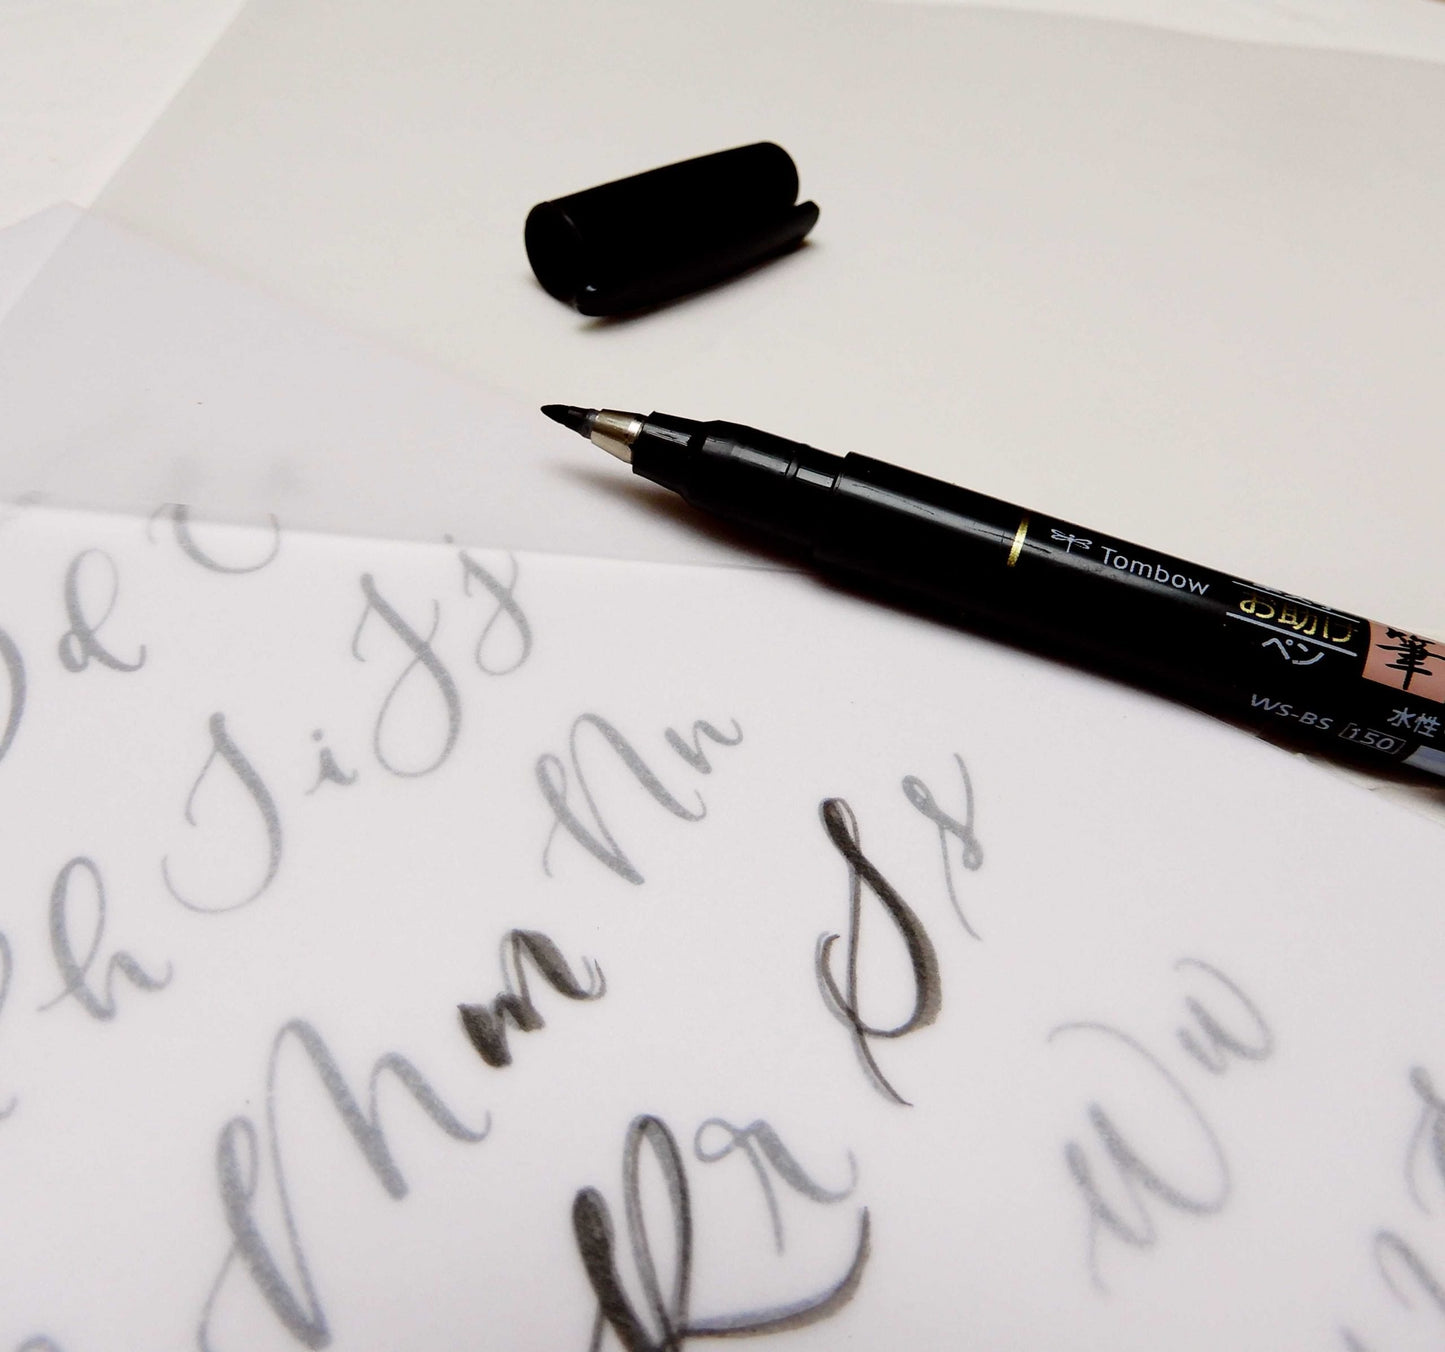 Tombow
お助け
ペン
筆
WS-BS 150
水性
d
J j
I i
N n
h
S s
M m
R r
W w